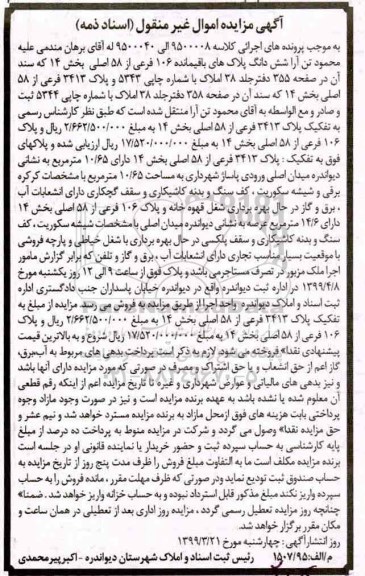 آگهی مزایده اموال غیر منقول (اسناد ذمه)
به موجب پرونده های اجرائی کلاسه ۹۵۰۰۰۰۸ الی ۹۵۰۰۰۴۰ له آقای برهان مندمی علیه
محمود تن آرا شش دانگ پلاک های باقیمانده ۱۰۶ فرعی از ۵۸ اصلی بخش ۱۴ که سند
آن در صفحه ۳۵۵ دفترجلد ۳۸ املاک با شماره چاپی ۵۳۴۳ و پلاک ۳۴۱۳ فرعی از ۵۸
اصلی بخش ۱۴ که سند آن در صفحه ۳۵۸ دفترجلد ۳۸ املاک با شماره چاپی ۵۳۴۴ ثبت
و صادر و مع الواسطه به آقای محمود تن آرا منتقل شده است که طبق نظر کارشناس رسمی
به تفکیک پلاک ۳۴۱۳ فرعی از ۵۸ اصلی بخش ۱۴ به مبلغ ۲/۶۶۲/۵۰۰/۰۰۰ ریال و پلاک
۱۰۶ فرعی از ۵۸ اصلی بخش ۱۴ به مبلغ ۱۷/۵۲۰/۰۰۰/۰۰۰ ریال ارزیابی شده و پلاکهای
فوق به تفکیک : پلاک ۳۴۱۳ فرعی از ۵۸ اصلی بخش ۱۴ دارای ۱۰/۶۵ مترمربع به نشانی
دیواندره میدان اصلی ورودی پاساژ شهرداری به مساحت ۱۰/۶۵ مترمربع با مشخصات کرکره
برقی و شیشه سکوریت ، کف سنگ و بدنه کاشیکاری و سقف گچکاری دارای انشعابات آب
، برق و گاز در حال بهره برداری شغل قهوه خانه و پلاک ۱۰۶ فرعی از ۵۸ اصلی بخش ۱۴
دارای ۱۴/۶ مترمربع عرصه به نشانی دیواندره میدان اصلی با مشخصات شیشه سکوریت ، کف
سنگ و بدنه کاشیکاری و سقف پلکسی در حال بهره برداری با شغل خیاطی و پارچه فروشی
با موقعیت بسیار مناسب تجاری دارای انشعابات آب ، برق و گاز و تلفن که برابر گزارش مامور
اجرا ملک مزبور در تصرف مستاجر می باشد و پلاک فوق از ساعت ۹ الی ۱۲ روز یکشنبه مورخ
۱۳۹۹/۴/۸ در اداره ثبت دیواندره واقع در دیواندره خیابان پاسداران جنب دادگستری اداره
ثبت اسناد و املاک دیواندره واحد اجرا از طریق مزایده به فروش می رسد. مزایده از مبلغ به
تفکیک پلاک ۳۴۱۳ فرعی از ۵۸ اصلی بخش ۱۴ به مبلغ ۲/۶۶۲/۵۰۰/۰۰۰ ریال و پلاک
۱۰۶ فرعی از ۵۸ اصلی بخش ۱۴ به مبلغ ۱۷/۵۲۰/۰۰۰/۰۰۰ ریال شروع و به بالاترین قیمت
پیشنهادی نقدا" فروخته می شود. لازم به ذکر است پرداخت بدهی های مربوط به آب،برق،
گاز اعم از حق انشعاب و یا حق اشتراک و مصرف در صورتی که مورد مزایده دارای آنها باشد
و نیز بدهی های مالیاتی و عوارض شهرداری و غیره تا تاریخ مزایده اعم از اینکه رقم قطعی
آن معلوم شده یا نشده باشد به عهده برنده مزایده است و نیز در صورت وجود مازاد وجوه
پرداختی بابت هزینه های فوق از محل مازاد به برنده مزایده مسترد خواهد شد و نیم عشر و
حق مزایده نقدا" وصول می گردد و شرکت در مزایده منوط به پرداخت ده درصد از مبلغ
پایه کارشناسی به حساب سپرده ثبت و حضور خریدار یا نماینده قانونی او در جلسه است
برنده مزایده مکلف است ما به التفاوت مبلغ فروش را ظرف مدت پنج روز از تاریخ مزایده به
حساب صندوق ثبت تودیع نماید ودر صورتی که ظرف مهلت مقرر ، مانده فروش را به حساب
سپرده واریز نکند مبلغ مذکور قابل استرداد نبوده و به حساب خزانه واریز خواهد شد . ضمنا"
چنانچه روز مزایده تعطیل رسمی گردد ، مزایده روز اداری بعد از تعطیلی در همان ساعت و
مکان مقرر برگزار خواهد شد.
روز انتشار آگهی : چهارشنبه مورخ ۱۳۹۹/۳/۲۱
م/الف:۱۵۰۷/۹۵ رئیس ثبت اسناد و املاک شهرستان دیواندره - اکبر پیرمحمدی